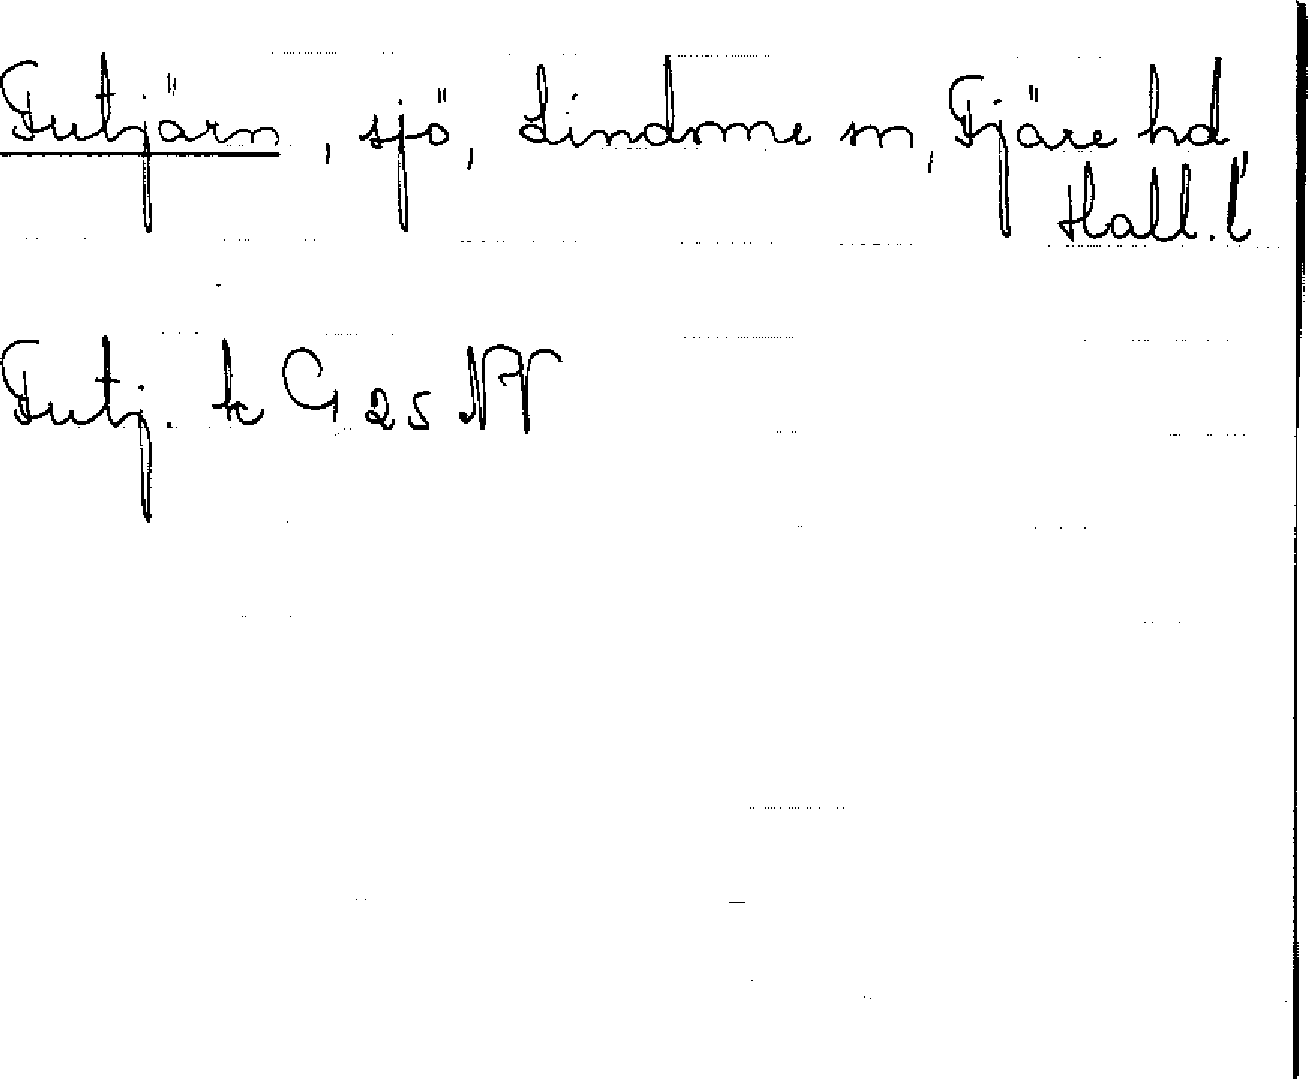 Futjärn, sjö, Lindome sn, Fjäre hd,
Hall. l
Futj. k G 25 NV